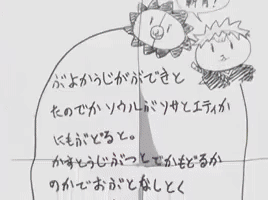 斬月?
ぶよかうじがができと
たのでかソウルがソサとエティか
にもぶどると。
かすとうじぶつとでかもどるか
のかでおぶとなしとく